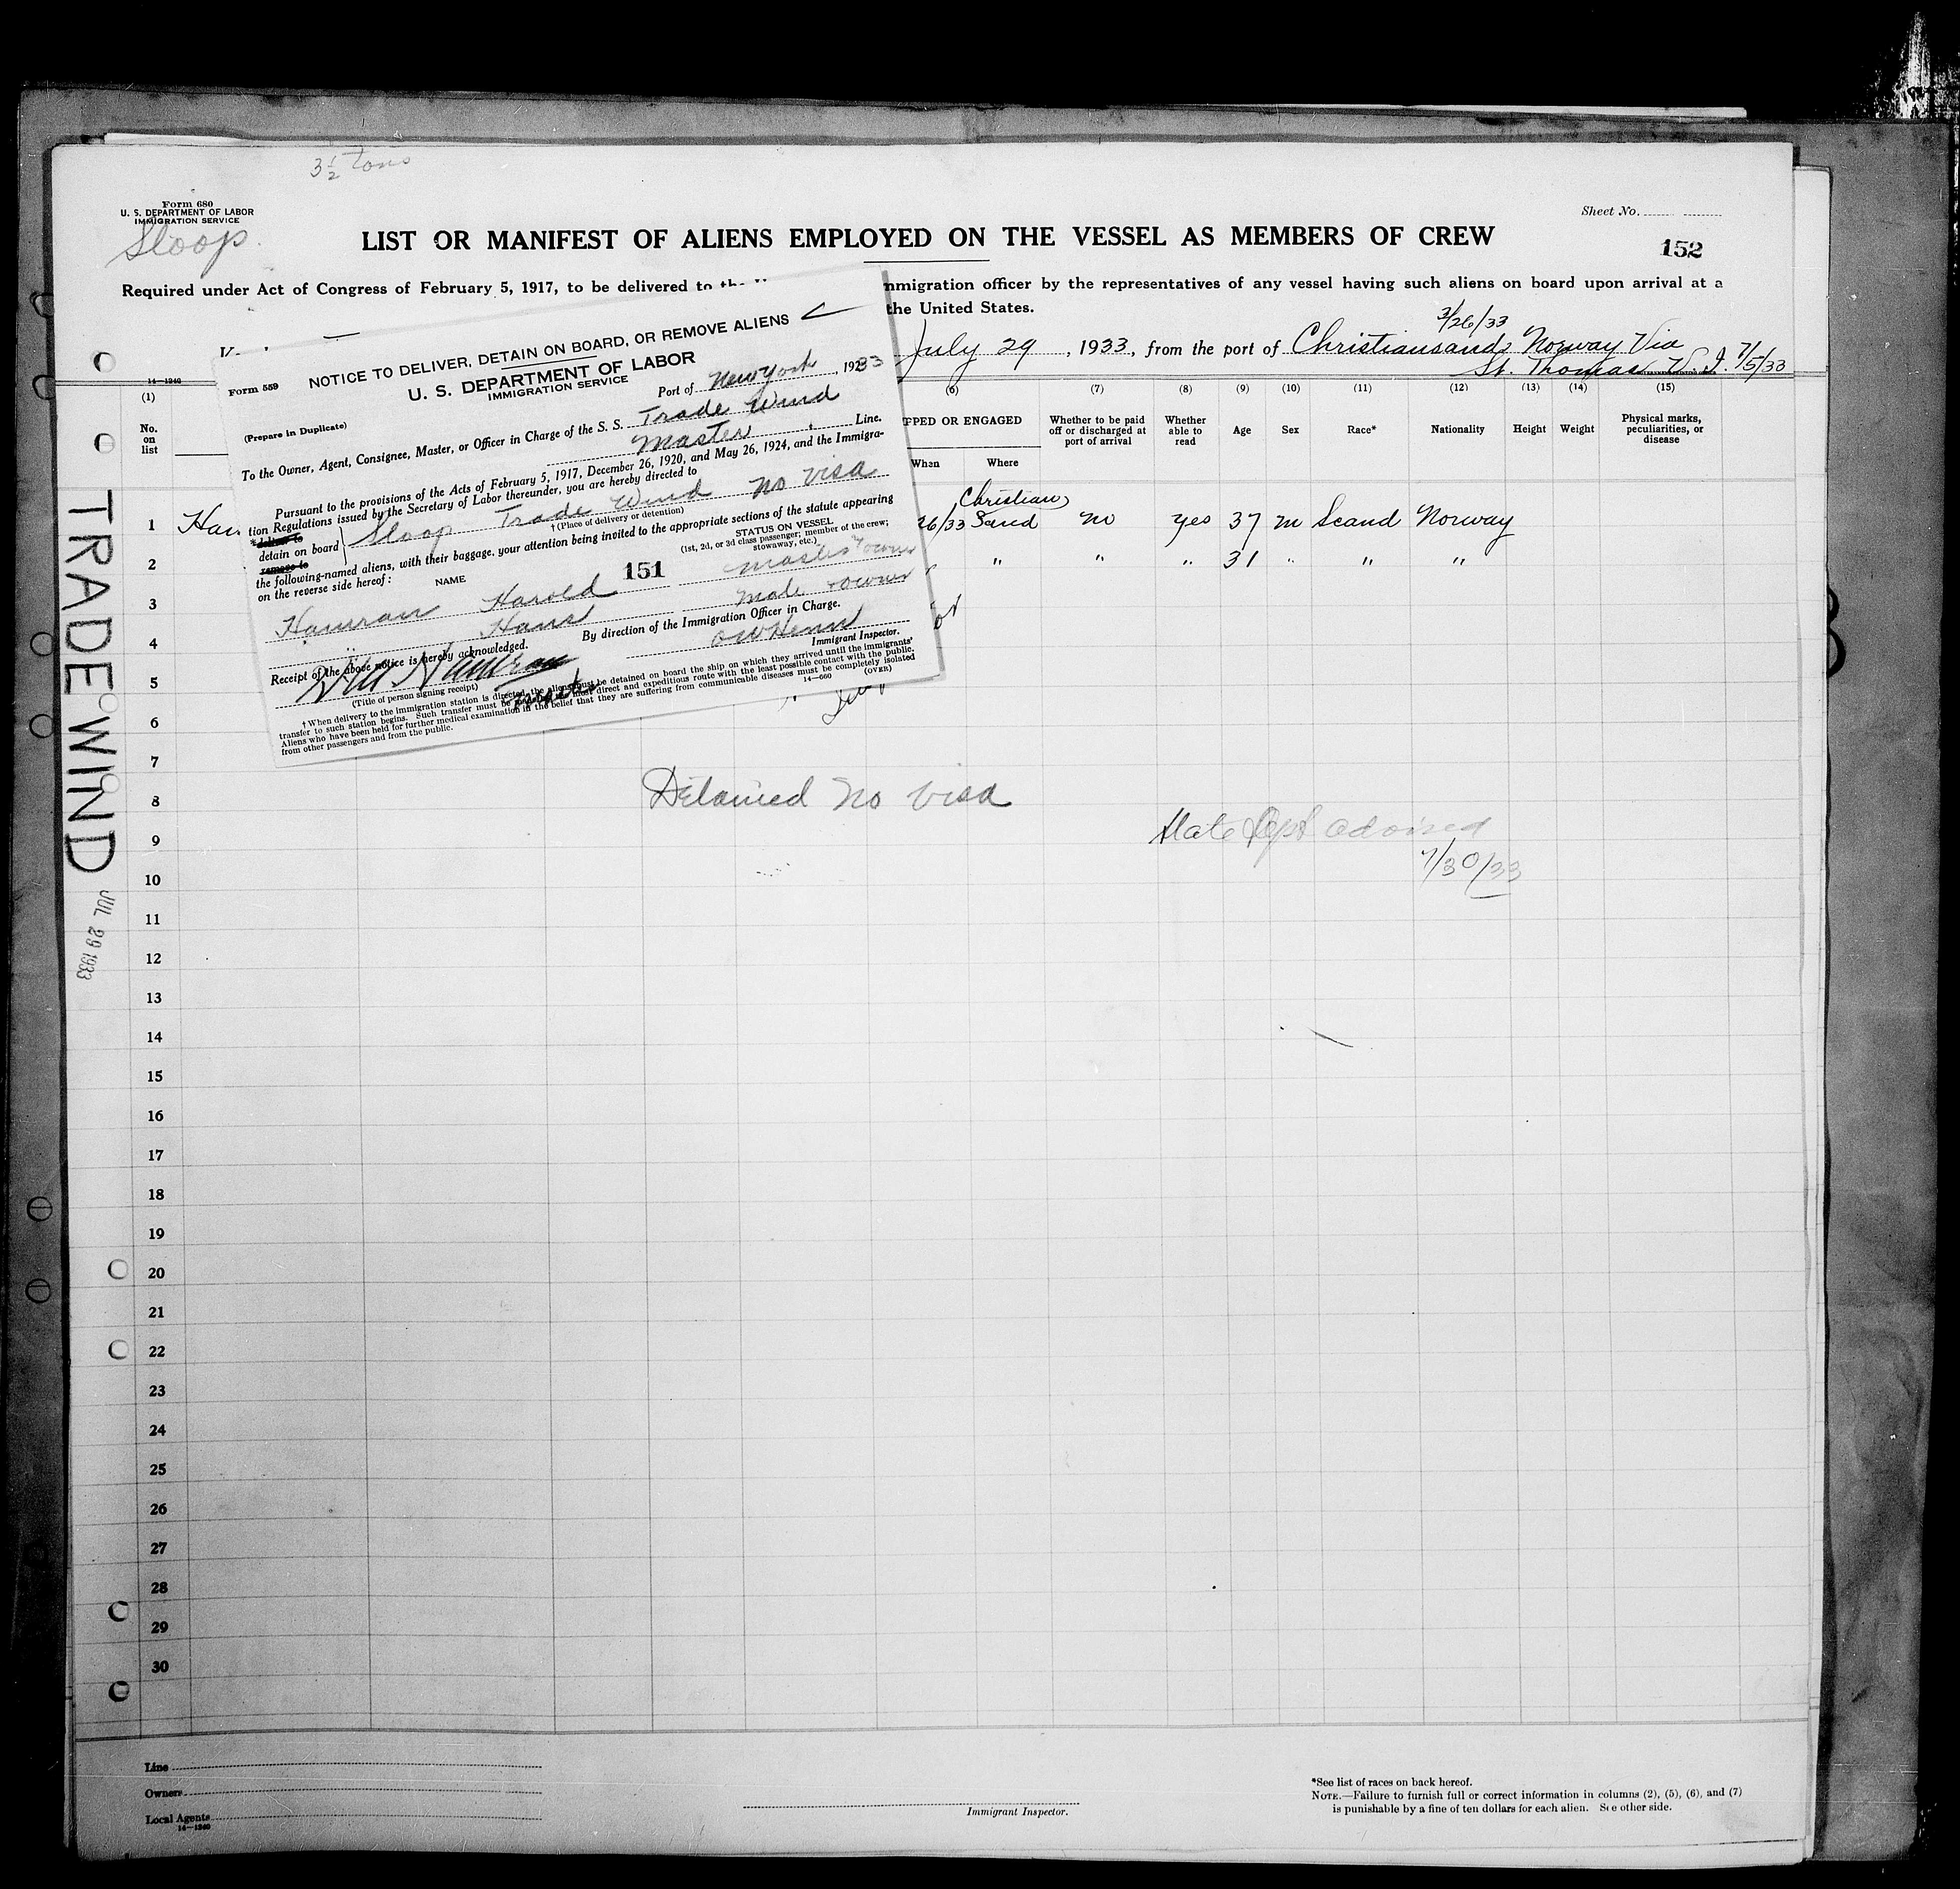 3 1/2 tons
Form 680
U. S. DEPARTMENT OF LABOR
IMMIGRATION SERVICE
Sloop
Sheet No.
LIST OR MANIFEST OF ALIENS EMPLOYED ON THE VESSEL AS MEMBERS OF CREW
152
Required under Act of Congress of February 5, 1917, to be delivered to
mmigration officer by the representatives of any vessel having such aliens on board upon arrival at a
the United States.
3/26/33
July 29, 1933, from the port of Christiansand, Norway Via
St. Thomas V. I. 7/5/33
14—1240
Form 559
NOTICE TO DELIVER, DETAIN ON BOARD, OR REMOVE ALIENS
U. S. DEPARTMENT OF LABOR
IMMIGRATION SERVICE
Port of New York, 1933
(Prepare in Duplicate)
To the Owner, Agent, Consignee, Master, or Officer in Charge of the S. S. Trade Wind
Master Line.
Pursuant to the provisions of the Acts of February 5, 1917, December 26, 1920, and May 26, 1924, and the Immigra-
tion Regulations issued by the Secretary of Labor thereunder, you are hereby directed to
*deliver to
detain on board
remove to
Sloop Trade Wind no visa
†(Place of delivery or detention)
the following-named aliens, with their baggage, your attention being invited to the appropriate sections of the statute appearing
on the reverse side hereof:
NAME
151
STATUS ON VESSEL
(1st, 2d, or 3d class passenger; member of the crew;
stowaway, etc.)
Hamran Harold master owner
" Hans mate owner
By direction of the Immigration Officer in Charge.
Immigrant Inspector.
Receipt of the above notice is hereby acknowledged.
(Title of person signing receipt)
† When delivery to the immigration station is directed, the aliens must be detained on board the ship on which they arrived until the immigrants'
transfer to such station begins. Such transfer must be by the most direct and expeditious route with the least possible contact with the public.
Aliens who have been held for further medical examination in the belief that they are suffering from communicable diseases must be completely isolated
from other passengers and from the public.
14—660
(OVER)
(1) (6) (7) (8) (9) (10) (11) (12) (13) (14) (15)
No. on list
PPED OR ENGAGED
When Where
Whether to be paid off or discharged at port of arrival
Whether able to read
Age
Sex
Race*
Nationality
Height
Weight
Physical marks, peculiarities, or disease
1 Ham 26/33 Christian Sand no yes 37 m Scand Norway
2 " " " 31 " " "
3
4
5
6
7
8
Detained no visa
State Dept advised
7/30/33
9
10
11
12
13
14
15
16
17
18
19
20
21
22
23
24
25
26
27
28
29
30
TRADE WIND
JUL 29 1933
Line
Owners
Local Agents
14—1240
Immigrant Inspector.
*See list of races on back hereof.
NOTE.—Failure to furnish full or correct information in columns (2), (5), (6), and (7)
is punishable by a fine of ten dollars for each alien. See other side.